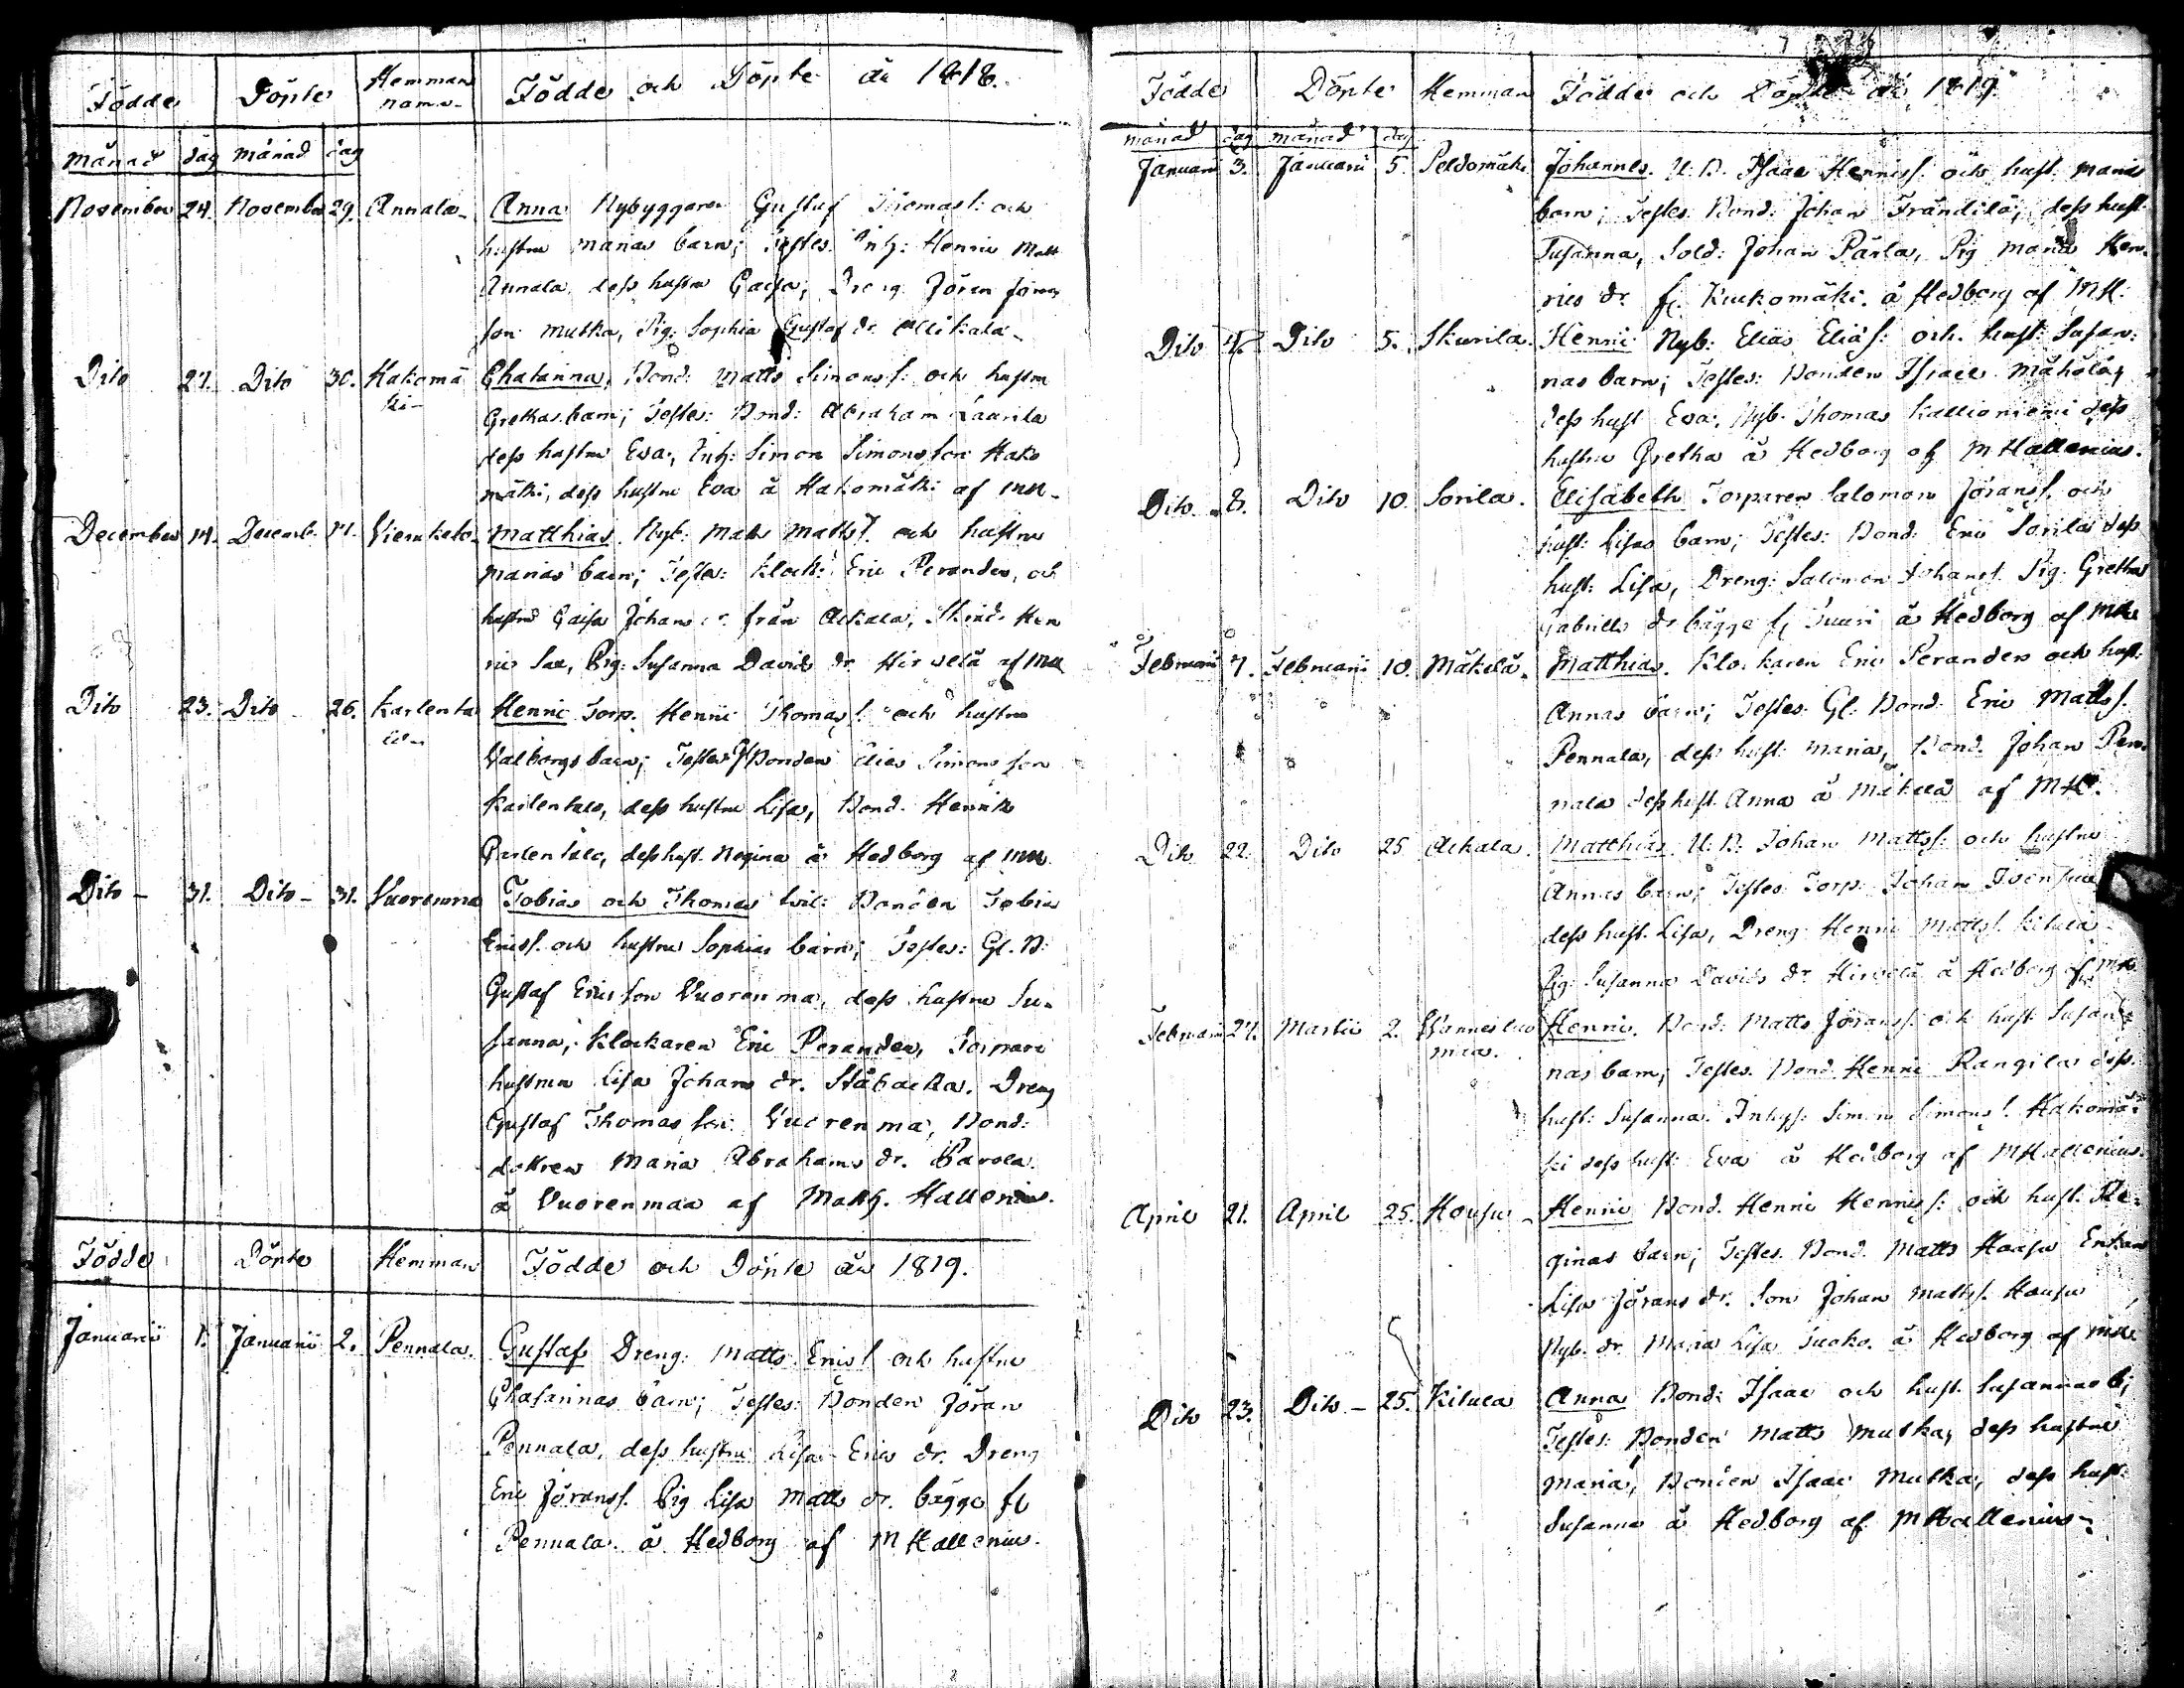 Födde Döpte Hemmans namn Födde och Döpte år 1818.
månad dag månad dag
November 24. November 29. Annala Anna Nybyggaren Gustaf Thomas: och
hustru Marias barn; Testes: Inh: Henric Matts
Annala dess hustru Caisa, Dreng Jören Jörans
son Mutka, Pig: Sophia Gustaf dr. Allikala
Dito 27. Dito 30. Hakomä Chatarina, Bond: Matts Simons: och hustru
ki Grethas barn; Testes: Bond: Abraham Laurila
dess hustru Eva, Inh: Simon Simonsson Hako
mäki, dess hustru Eva å Hakomäki af MH
December 14. Decemb. 17. Vierukoto Matthias Nyb: Matts Matts: och hustru
Marias barn; Testes: Klock: Eric Perander, och
hustru Caisa Johans dr. från Ackala, Skind. Hen
ric Sax, Pig: Susanna Davids dr. Hirvelä af MH
Dito 23. Dito 26. Karlenta Henric Torp. Henric Thomas: och hustru
Valborgs barn; Testes Gl Bonden Elias Simons son
Karlentalo, dess hustru Lisa, Bond. Henrik
Carlentalo, dess hust. Regina å Hedborg af MH
Dito 31. Dito 31. Vuorenma Tobias och Thomas tvil: Bonden Tobias
Erics: och hustru Sophias barn; Testes: Gl. B:
Gustaf Ericsson Vuorenma, dess hustru Su-
sanna, Klockaren Eric Perander, Torpare
hustrun Lisa Johans dr. Ståbacka. Dreng
Gustaf Thomas son Vuorenma, Bond:
dottren Maria Abrahams dr. Parola
å Vuorenmaa af Matth. Hallenius.
Födde Döpte Hemman Födde och Döpte år 1819.
Januarii 1. Januarii 2. Pennala. Gustaf Dreng: Matts Erics: och hustru
Chatarinas barn; Testes: Bonden Jöran
Pennala, dess hustru Lisa Erics dr. Dreng
Eric Jörans: Pig Lisa Matts dr. bägge fr
Pennala å Hedborg af M Hallenius.
Födde Döpte Hemman Födde och Döpte år 1819
månad dag månad dag
Januarii 3. Januarii 5. Peldomäki Johannes. U. B. Isaac Henrics: och hust: Marias
barn; Testes: Bond: Johan Frändilä, dess hust:
Susanna, Sold: Johan Pärla, Pig Maria Hen
rics dr. fr Kuckomäki. å Hedborg af MH:
Dito 4. Dito 5. Skurila. Henric Nyb: Elias Elias: och hust: Susan:
nas barn; Testes: Bonden Isaac Mähölä,
dess hust Eva. Nyb. Thomas Kallioniemi dess
hustru Gretha å Hedborg af M Hallenius.
Dito 8. Dito 10. Sorila. Elisabeth Torparen Salomon Jörans: och
hust: Lisas barn; Testes: Bond: Eric Sorila dess
hust: Lisa, Dreng: Salomon Johans: Pig: Gretha
Gabriells dr bägge fr Tuuri å Hedborg af MH
Februarii 7. Februarii 10. Mäkelä. Matthias. Klockaren Eric Perander och hust:
Annas barn; Testes: Gl: Bond: Eric Matts:
Pennala, dess hust: Maria, Bond. Johan Pen
nala dess hust. Anna å Mäkelä af MH.
Dito 22. Dito 25 Ackala. Matthias. U. B. Johan Matts: och hustru
Annas barn; Testes: Torp: Johan
dess hust. Lisa, Dreng: Henric Matts: Kitula
Pig: Susanna Davids dr Hirvelä å Hedborg af MH
Februarii 27. Martii 2. Henric. Bond: Matts Jörans: och hust: Susan
nas barn; Testes. Bond. Henric Rangila dess
hust: Susanna. Inhys: Simon Simons: Hakomä
ki dess hust: Eva å Hedborg af M Hallenius.
April 21. April 25. Housu Henric Bond. Henric Henrics: och hust. Re-
ginas barn; Testes. Bond. Matts Housu Enkan
Lisa Jörans dr. Son Johan Matts: Housu
Nyb. dr. Maria Lisa Tuoko. å Hedborg af MH
Dito 23. Dito 25. Kitula Anna Bond: Isaac och hust. Susannas b;
Testes: Bonden Matts Mutka, dess hustru
Maria, Bonden Isaac Mutka, dess hust:
Susanna å Hedborg af M Hallenius